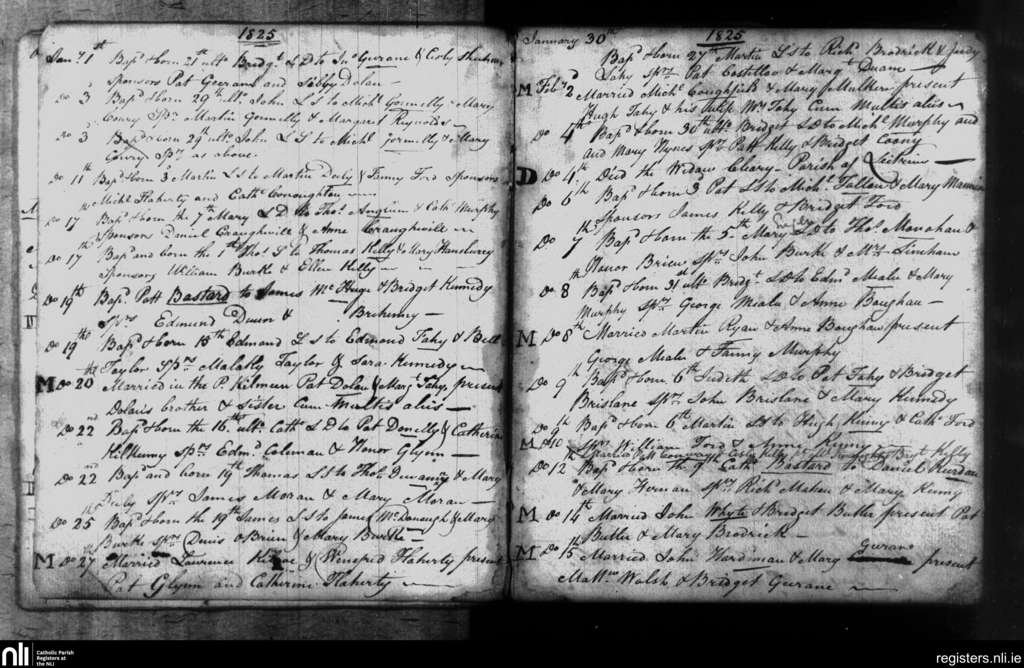 1825
Jany 1th Bapd & born 21th ulto Bridgt L D to Jno Gurane & Cicly
Sponsors Pat Gurane and Sibby Dolan
Do 3 Bapd & born 29th ulto John L S to Michl Gonnelly & Mary
Conry Sprs Martin Gonnelly & Margaret Reynolds
Do 3 Bapd & born 29th ulto John L S to Michl & Mary
Conry Sprs as above.
Do 11th Bapd & born 3 Martin L S to Martin & Fanny Ford Sponsors
Michl Flaherty and Cathe Conoughton
Do 17 Bapd & born the 7th Mary L D to Thos Anglum & Cath Murphy
Sponsors Daniel Craughwill & Anne Craughwill
Do 17th Bapd and born the 1st Thos L S to Thomas Kelly & Mary
Sponsors William Burke & Ellen Kelly
Do 19th Bapd Patt Bastard to James Mc Hugo & Bridget Kennedy
Sprs Edmund & Brehenny
Do 19th Bapd & born 18th Edmond L S to Edmond Fahy & Bell
Taylor Sprs Malachy Taylor & Sara Kennedy
M Do 20th Married in the P. Kilmeen Pat Dolan & Margt Fahy, present
Dolan's brother & Sister Cum Multis aliis
Do 22nd Bapd & born the 16th ulto Cathe L D to Pat Donelly & Catherine
Kilkenny Sprs Edmd Coleman & Honor Glynn
Do 22nd Bapd and born 19 Thomas L S to Thos & Mary
Sprs James Moran & Mary Moran
Do 25th Bapd & born the 19th James L S to James McDonough & Mary
Burke Sprs Denis O Brien & Mary Burke
M Do 27th Married Lawrence & Winefred Flaherty present
Pat Glynn and Catherine Flaherty
1825
January 30th
Bapd & born 27th Martin L S to Richd Brodrick & Judy
Fahy Sprs Pat Costellow & Margt Duane
M Feby 2d Married Michl & Mary Mulkern present
Hugh Fahy & his Wm Fahy Cum Multis aliis
Do 4th Bapd & born 30th ulto Bridget L D to Michl Murphy and
and Mary Hynes Sprs Patt Kelly & Bridget Coony
D Do 4th Died the Widow Cleary Parish of Leitrim
Do 6th Bapd & born 3 Pat L S to Michl Fallon & Mary Mannin
Sponsors James Kelly & Bridget Ford
Do 7th Bapd & born the 5th Mary L D to Thos Monahan &
Honor Brien Sprs John Burke & Mrs Linham
Do 8th Bapd & born 31st ulto Bridgt L D to Edmd & Mary
Murphy Sprs George & Anne Boughan
M Do 8th Married Martin Ryan & Anne Boughan present
George & Fanny Murphy
Do 9th Bapd & born 6th Judith L D to Pat Fahy & Bridget
Brislane Sprs John Brislane & Mary Kennedy
Do 9th Bapd & born 6th Martin L S to Hugh Kenny & Cathe Ford
Sprs William Ford & Anne Kenny
M Do 10 Married Patt
Do 12th Bapd & born the 9th Cathe Bastard to Daniel
& Mary Sprs Richd & Mary Kenny
M Do 14th Married John Whyte & Bridget Butler present Pat
Butler & Mary Brodrick
Gurane
M Do 15th Married John Hardiman & Mary present
Walsh & Bridget Gurane
nli
Catholic Parish
Registers at
the NLI
registers.nli.ie